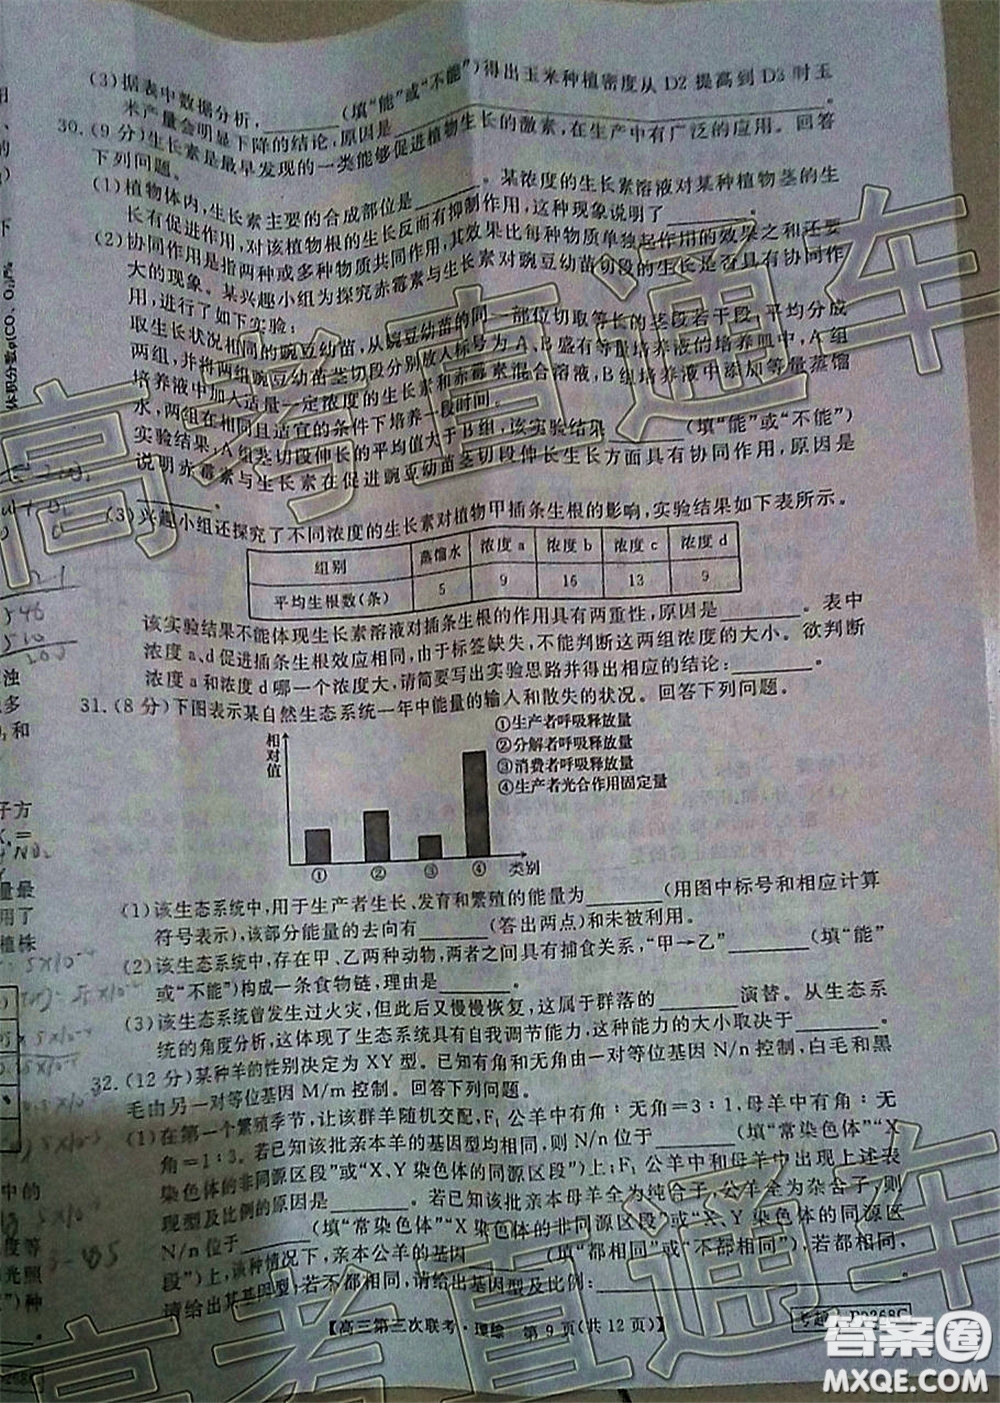 (3)据表中数据分析,______(填“能”或“不能”)得出玉米种植密度从 D2 提高到 D3 时玉
米产量会明显下降的结论,原因是______。
30.(9 分)生长素是最早发现的一类能够促进植物生长的激素,在生产中有广泛的应用。回答
下列问题。
(1)植物体内,生长素主要的合成部位是______。某浓度的生长素溶液对某种植物茎的生
长有促进作用,对该植物根的生长反而有抑制作用,这种现象说明了______。
(2)协同作用是指两种或多种物质共同作用,其效果比每种物质单独起作用的效果之和还要
大的现象。某兴趣小组为探究赤霉素与生长素对豌豆幼苗切段的生长是否具有协同作
用,进行了如下实验:
取生长状况相同的豌豆幼苗,从豌豆幼苗的同一部位切取等长的茎段若干段,平均分成
两组,并将两组豌豆幼苗茎切段分别放入标号为 A、B盛有等量培养液的培养皿中,A 组
培养液中加入适量一定浓度的生长素和赤霉素混合溶液,B 组培养液中添加等量蒸馏
水,两组在相同且适宜的条件下培养一段时间。
实验结果,A 组茎切段伸长的平均值大于 B 组,该实验结果______(填“能”或“不能”)
说明赤霉素与生长素在促进豌豆幼苗茎切段伸长生长方面具有协同作用,原因是
______。
(3)兴趣小组还探究了不同浓度的生长素对植物甲插条生根的影响,实验结果如下表所示。
组别 蒸馏水 浓度 a 浓度 b 浓度 c 浓度 d
平均生根数(条) 5 9 16 13 9
该实验结果不能体现生长素溶液对插条生根的作用具有两重性,原因是______。表中
浓度 a、d 促进插条生根效应相同,由于标签缺失,不能判断这两组浓度的大小。欲判断
浓度 a 和浓度 d 哪一个浓度大,请简要写出实验思路并得出相应的结论:______。
31.(8 分)下图表示某自然生态系统一年中能量的输入和散失的状况。回答下列问题。
相对值
①生产者呼吸释放量
②分解者呼吸释放量
③消费者呼吸释放量
④生产者光合作用固定量
① ② ③ ④ 类别
(1)该生态系统中,用于生产者生长、发育和繁殖的能量为______(用图中标号和相应计算
符号表示),该部分能量的去向有______(答出两点)和未被利用。
(2)该生态系统中,存在甲、乙两种动物,两者之间具有捕食关系,“甲→乙”______(填“能”
或“不能”)构成一条食物链,理由是______。
(3)该生态系统曾发生过火灾,但此后又慢慢恢复,这属于群落的______演替。从生态系
统的角度分析,这体现了生态系统具有自我调节能力,这种能力的大小取决于______。
32.(12 分)某种羊的性别决定为 XY 型。已知有角和无角由一对等位基因 N/n 控制,白毛和黑
毛由另一对等位基因 M/m 控制。回答下列问题。
(1)在第一个繁殖季节,让该群羊随机交配,F₁ 公羊中有角∶无角=3∶1,母羊中有角∶无
角=1∶3。若已知该批亲本羊的基因型均相同,则 N/n 位于______(填“常染色体”“X
染色体的非同源区段”或“X、Y 染色体的同源区段”)上;F₁ 公羊和母羊中出现上述表
现型及比例的原因是______。若已知该批亲本母羊全为纯合子,公羊全为杂合子,则
N/n 位于______(填“常染色体”“X 染色体的非同源区段”或“X、Y 染色体的同源区
段”)。该种情况下,亲本公羊的基因______(填“都相同”或“不都相同”),若都相同,
请给出其基因型;若不都相同,请给出基因型及比例:______。
【高三第三次联考·理综 第 9 页(共 12 页)】
高考直通车
高考直通车
答案圈
MXQE.COM